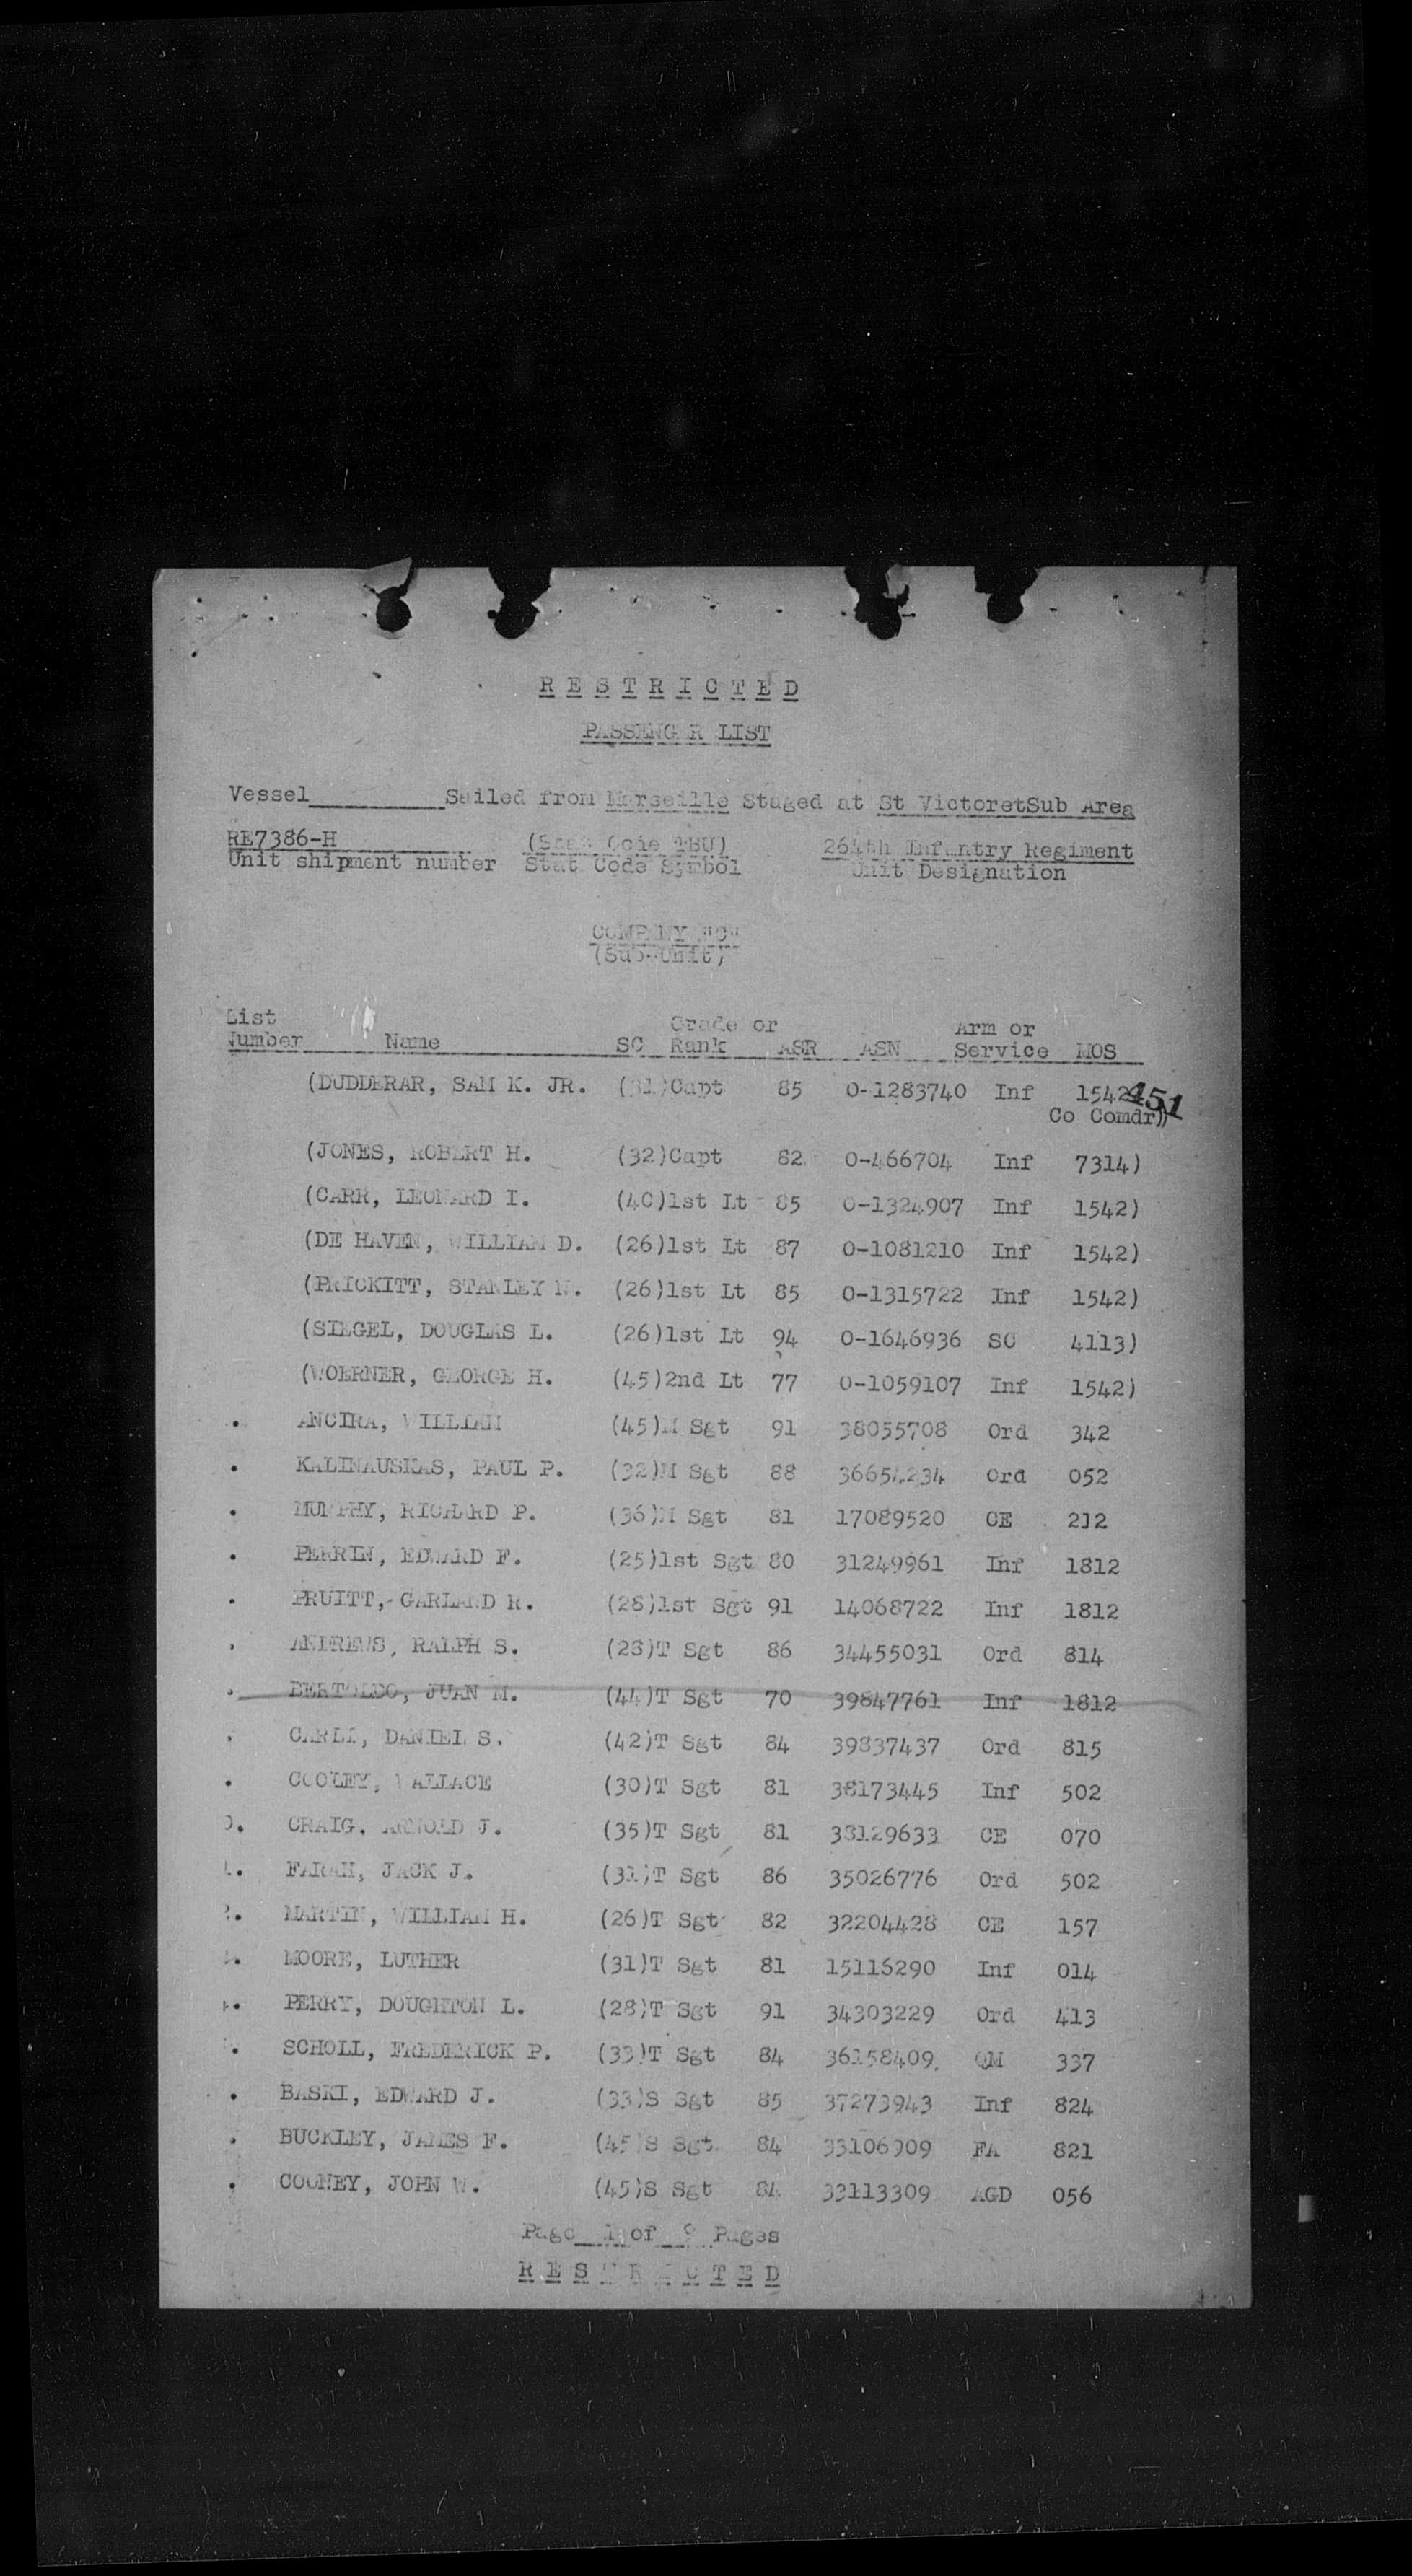 R E S T R I C T E D
PASSENGER LIST
Vessel__________Sailed from Marseille Staged at St VictoretSub Area
RE7386-H (Same Code TBU) 264th Infantry Regiment
Unit shipment number Stat Code Symbol Unit Designation
COMPANY "C"
(Sub-Unit)
List Grade or Arm or
Number Name SC Rank ASR ASN Service MOS
(DUDDERAR, SAM K. JR. (31)Capt 85 0-1283740 Inf 1542 451
Co Comdr))
(JONES, ROBERT H. (32)Capt 82 0-466704 Inf 7314)
(CARR, LEONARD I. (40)1st Lt 85 0-1324907 Inf 1542)
(DE HAVEN, WILLIAM D. (26)1st Lt 87 0-1081210 Inf 1542)
(PRICKITT, STANLEY N. (26)1st Lt 85 0-1315722 Inf 1542)
(SIEGEL, DOUGLAS L. (26)1st Lt 94 0-1646936 SC 4113)
(WOERNER, GEORGE H. (45)2nd Lt 77 0-1059107 Inf 1542)
. ANCIRA, WILLIAM (45)M Sgt 91 38055708 Ord 342
. KALINAUSKAS, PAUL P. (32)M Sgt 88 36654234 Ord 052
. MURPHY, RICHARD P. (36)M Sgt 81 17089520 CE 212
. PERRIN, EDWARD F. (25)1st Sgt 80 31249961 Inf 1812
. PRUITT, GARLAND R. (28)1st Sgt 91 14068722 Inf 1812
. ANDREWS, RALPH S. (28)T Sgt 86 34455031 Ord 814
. BERTOLDO, JUAN M. (44)T Sgt 70 39847761 Inf 1812
. CARLI, DANIEL S. (42)T Sgt 84 39837437 Ord 815
. COOLEY, WALLACE (30)T Sgt 81 38173445 Inf 502
0. CRAIG, ARNOLD J. (35)T Sgt 81 38129633 CE 070
1. FARAH, JACK J. (31)T Sgt 86 35026776 Ord 502
2. MARTIN, WILLIAM H. (26)T Sgt 82 32204428 CE 157
. MOORE, LUTHER (31)T Sgt 81 15116290 Inf 014
. PERRY, DOUGHTON L. (28)T Sgt 91 34303229 Ord 413
. SCHOLL, FREDERICK P. (33)T Sgt 84 36158409 QM 337
. BASKI, EDWARD J. (33)S Sgt 85 37273943 Inf 824
. BUCKLEY, JAMES F. (45)S Sgt 84 33106909 FA 821
. COONEY, JOHN W. (45)S Sgt 84 33113309 AGD 056
Page 1 of 9 Pages
R E S T R I C T E D